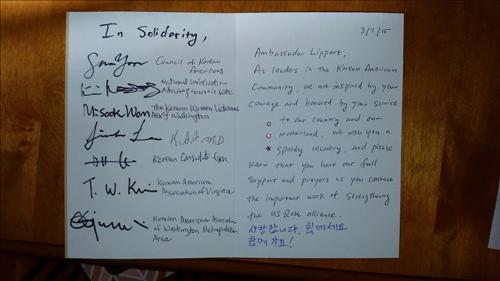 In Solidarity,
Council of Korean
Americans
National Unification
Advisory Council
Mi Sook Won
The Korean Women Veterans
of Washington
M.D
Korean Consulate Gen.
T. W. Kim
Korean American
Association of Virginia
Korean American Association
of Washington Metropolitan
Area
3/7/15
Ambassador Lippert,
As leaders in the Korean American
Community, we are inspired by your
courage and honored by your service
to our country and our
motherland. We wish you a
speedy recovery, and please
know that you have our full
support and prayers as you continue
the important work of strengthening
the US Rok alliance.
사랑합니다, 힘내세요
함께 가요!